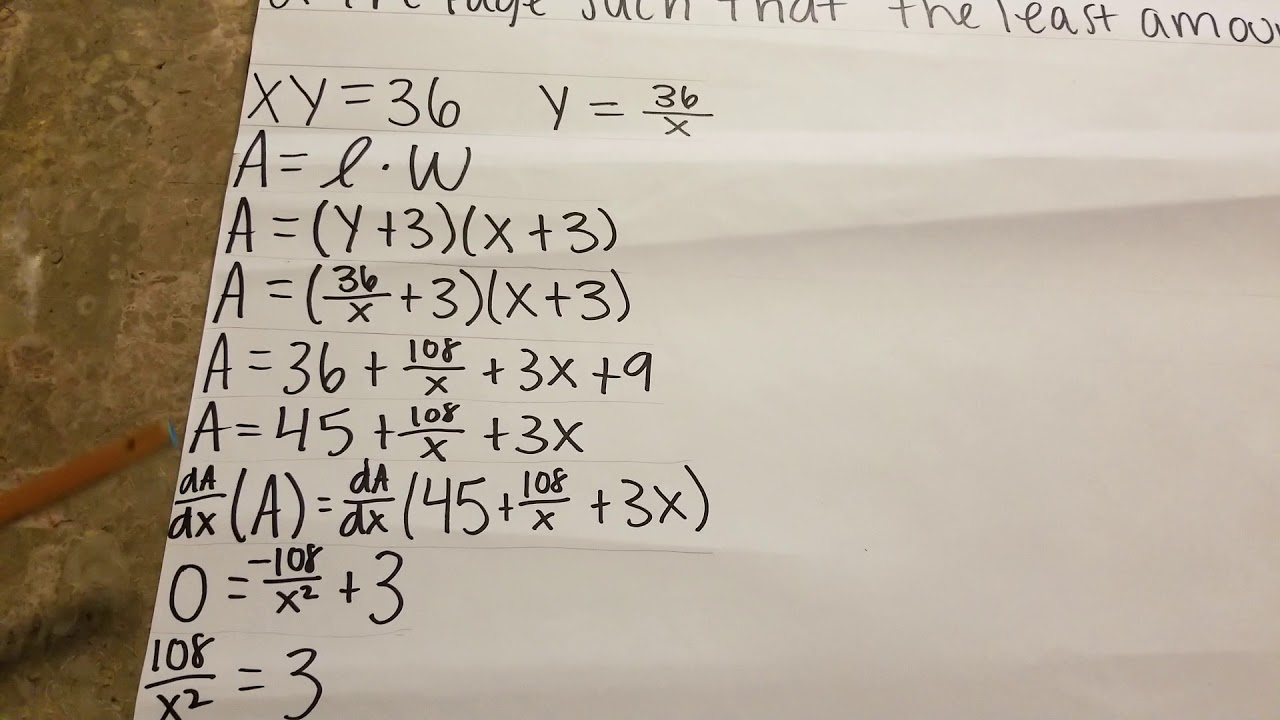 the Page such that the least amou
XY = 36 Y = 36/x
A = l · W
A = (Y + 3)(X + 3)
A = (36/x + 3)(X + 3)
A = 36 + 108/x + 3x + 9
A = 45 + 108/x + 3x
dA/dx (A) = dA/dx (45 + 108/x + 3x)
0 = -108/x² + 3
108/x² = 3